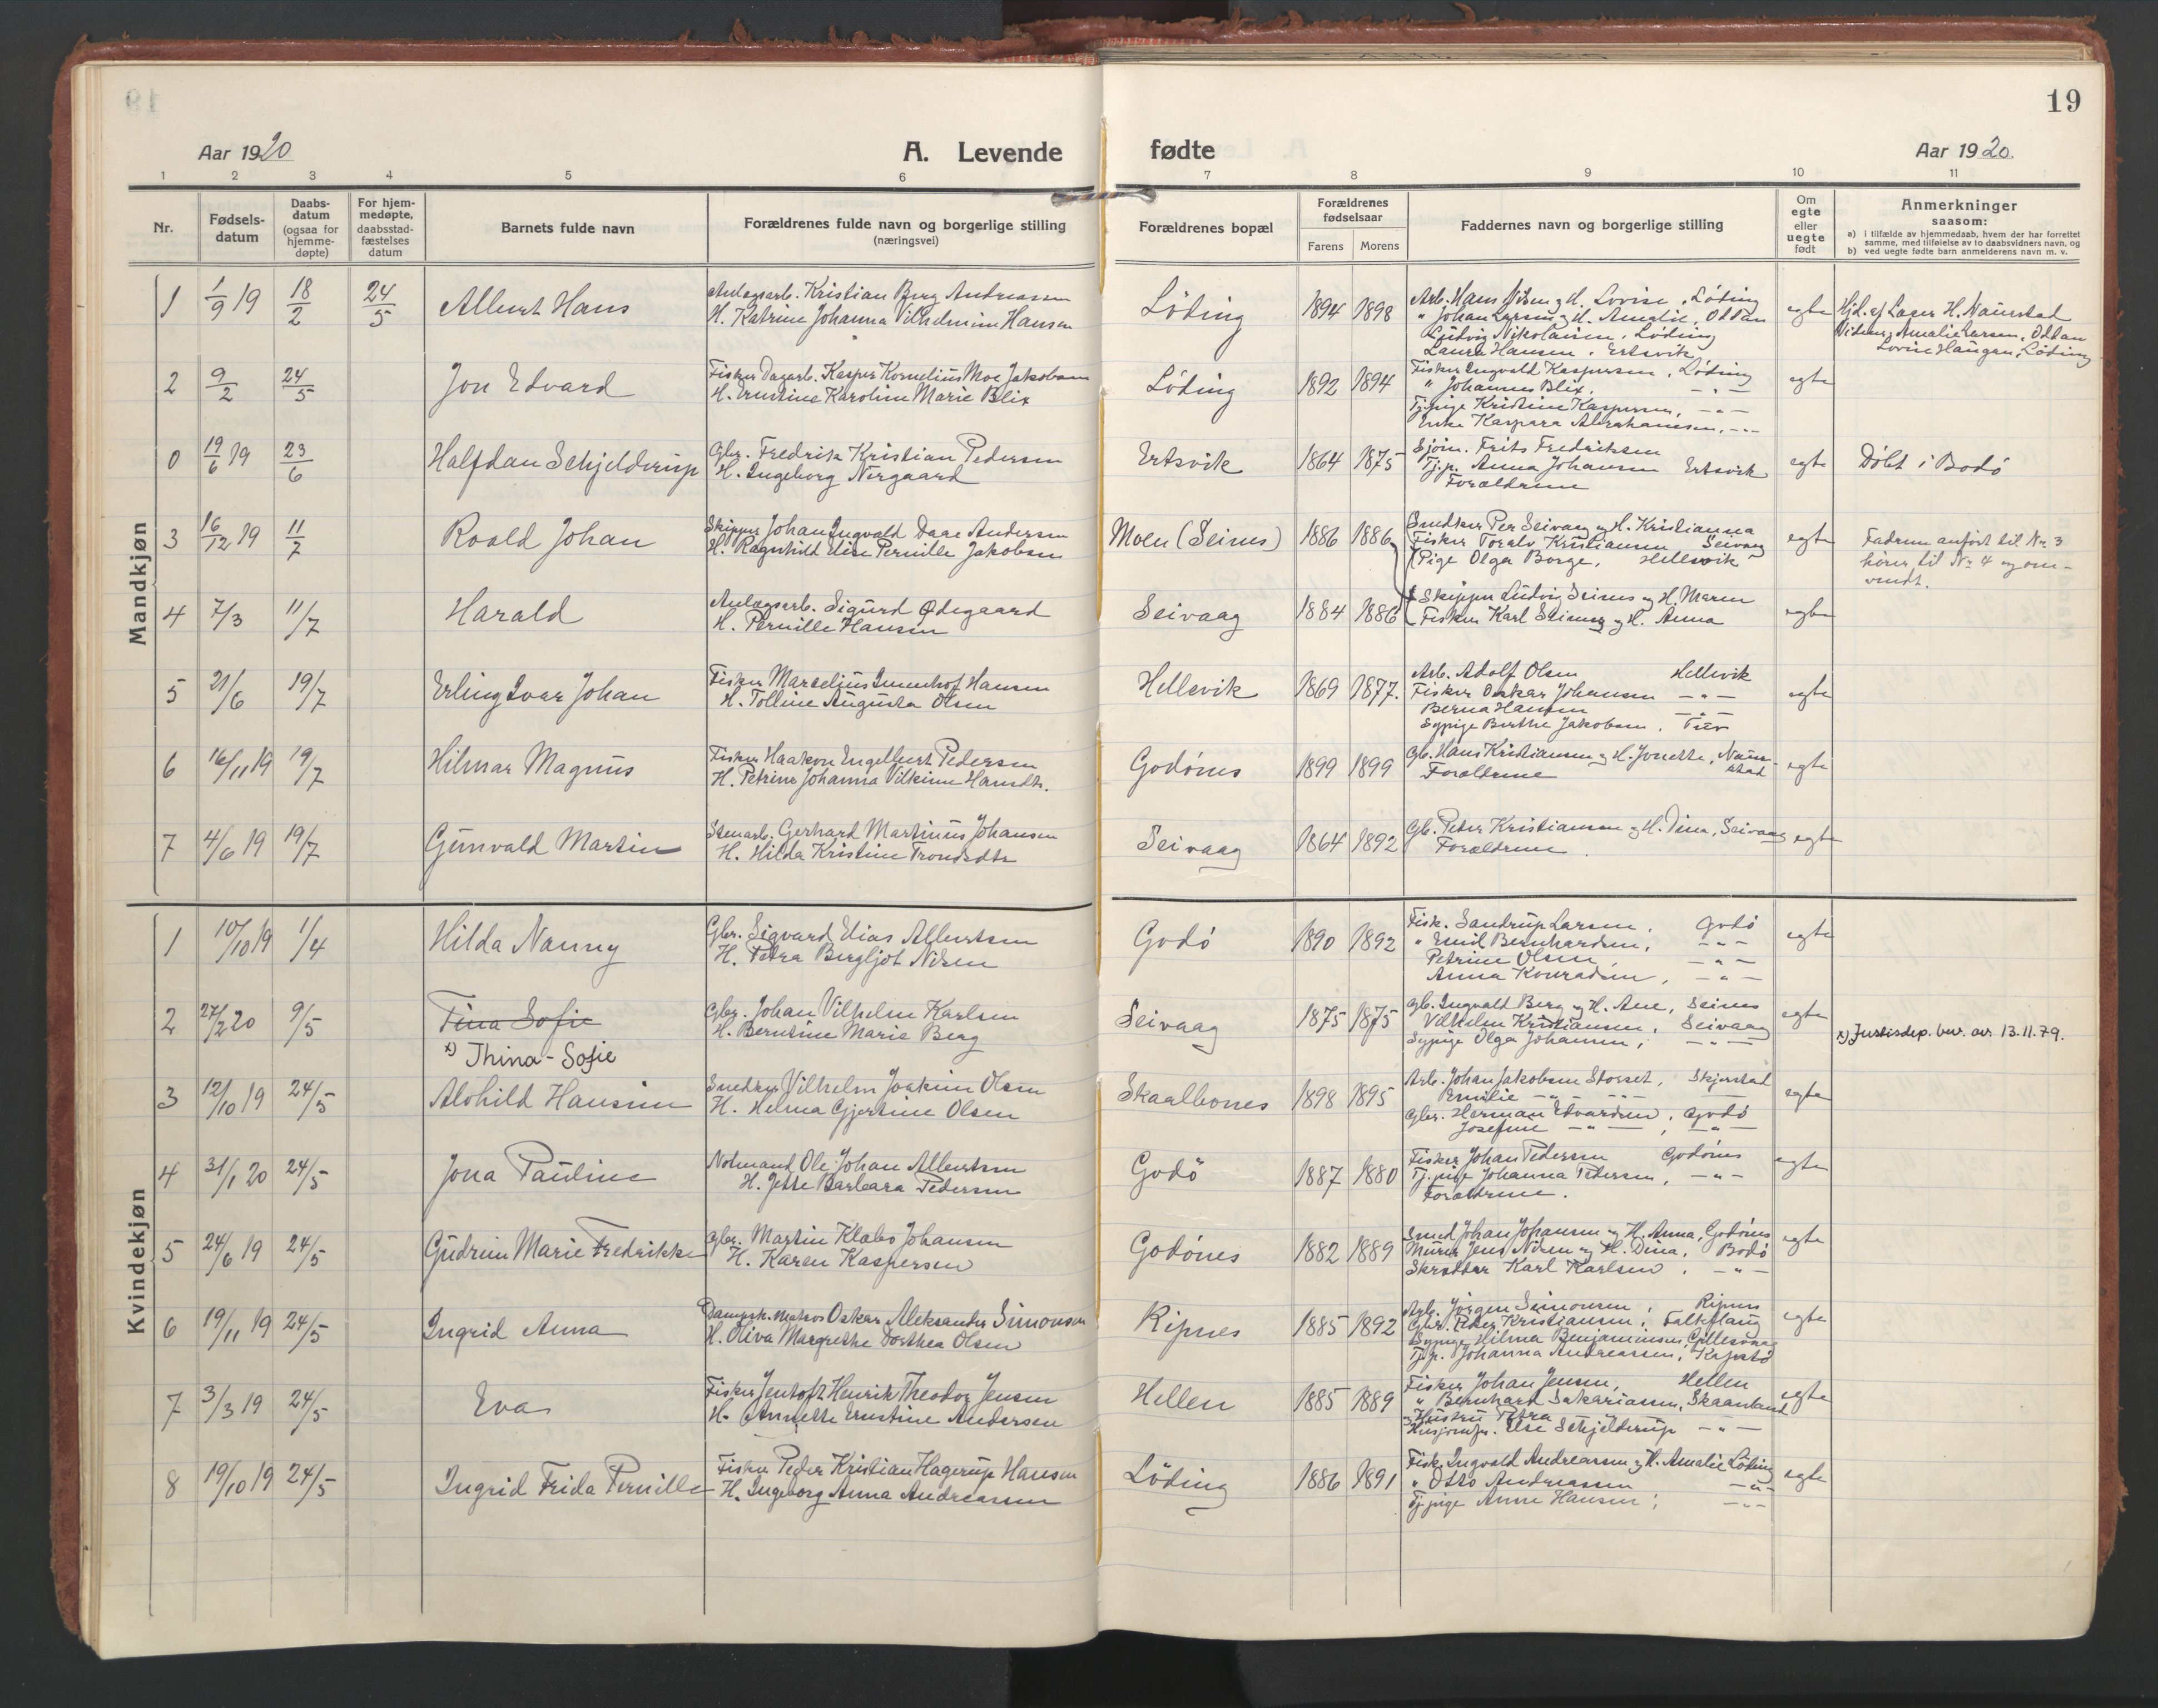 19
Aar 1920
A. Levende fødte
Aar 1920.
1 2 3 4 5 6 7 8 9 10 11
Nr.
Fødsels-
datum
Daabs-
datum
(ogsaa for
hjemme-
døpte)
For hjem-
medøpte,
daabsstad-
fæstelses
datum
Barnets fulde navn
Forældrenes fulde navn og borgerlige stilling
(næringsvei)
Forældrenes bopæl
Forældrenes
fødselsaar
Farens Morens
Faddernes navn og borgerlige stilling
Om
egte
eller
uegte
født
Anmerkninger
saasom:
a) i tilfælde av hjemmedaab, hvem der har forrettet
samme, med tilføielse av to daabsvidners navn, og
b) ved uegte fødte barn anmelderens navn m. v.
Mandkjøn
1 1/9 19 18/2 24/5 Albert Hans
Anlægsarb. Kristian Berg Andreassen
H. Katrine Johanna Vilhelmine Hansen
Löding 1894 1898
Arb. Hans Nilsen og H. Lovise, Löding
" Johan Larsen og H. Amalie, Oddan
Ludvig Nikolaisen, Löding
Laura Hansen, Ertsvik
egte
Hjd. af Lager H. Naurstad
Vidner, Amalie Larsen, Oddan
Lovise Haugen, Löding
2 9/2 24/5 Jon Edvard
Fisker Dagarb. Kasper Kornelius Moe Jakobsen
H. Ernstine Karoline Marie Blix
Löding 1892 1894
Fisker Ingvald Kaspersen, Löding
" Johannes Blix, - " -
Tj.pige Kristine Kaspersen, - " -
Enke Kaspara Abrahamsen, - " -
egte
0 19/6 19 23/6 Halfdan Schjelderup
Gbr. Fredrik Kristian Pedersen
H. Ingeborg Norgaard
Ertsvik 1864 1875
Sjöm. Frits Fredriksen
Tj.p. Anna Johansen Ertsvik
Forældrene
egte
Döbt i Bodö
3 16/12 19 11/7 Roald Johan
Skipper Johan Ingvald Daae Andersen
H. Ragnhild Elise Pernille Jakobsen
Moen (Seines) 1886 1886
Snedker Per Seivaag og H. Kristianna
Fisker Toralv Kristiansen Seivaag
Pige Olga Borge, Hellesvik
egte
Fadrene anfört til Nr 3
hörer til Nr 4 og om-
vendt.
4 7/3 11/7 Harald
Anlægsarb. Sigurd Ødegaard
H. Pernille Hansen
Seivaag 1884 1886
Skipper Ludvig Seines og H. Maren
Fisker Karl Seines og H. Anna
egte
5 21/6 19/7 Erling Ivar Johan
Fisker Marselius Imenhof Hansen
H. Tolline Augusta Olsen
Hellesvik 1869 1877.
Arb. Adolf Olsen Hellevik
Fisker Oskar Johansen - " -
Berna Hansen - " -
Sypige Berthe Jakobsen,
egte
6 16/11 19 19/7 Hilmar Magnus
Fisker Haakon Engelbert Pedersen
H. Petrine Johanna Vilkine Hansdtr.
Godönes 1899 1899
Gb. Hans Kristiansen og H. Jonette, Naur-
stad
Forældrene
egte
7 4/6 19 19/7 Gunvald Martin
Stenarb. Gerhard Martinus Johansen
H. Hilda Kristine Trondsdtr
Seivaag 1864 1892
Gb. Peter Kristiansen og H. Dina, Seivaag
Forældrene.
egte
Kvindekjøn
1 10/10 19 1/4 Hilda Nanny
Gbr. Sigvard Elias Albertsen
H. Petra Bergljot Nilsen
Godö 1890 1892
Fisk. Sandrup Larsen, Godö
" Emil Bernhardsen, - " -
Petrine Olsen, - " -
Anna Konradsen, - " -
egte
2 27/2 20 9/5 Tina Sofie
x) Thina-Sofie
Gbr. Johan Vilhelm Karlsen
H. Berntine Marie Berg
Seivaag 1875 1875
Gb. Ingvald Berg og H. Ane, Seines
Vilhelm Kristiansen, Seivaag
Sypige Olga Johansen, - " -
egte
x) Justisdep. bev. av. 13.11.79.
3 12/10 19 24/5 Alvhild Hansine
Snedker Vilhelm Joakim Olsen
H. Helma Gjertine Olsen
Skaalbones 1898 1895
Arb. Johan Jakobsen Storset, Skjerstad
Emilie - " - - " -
Gbr. Herman Edvardsen, Godö
Josefine - " -, - " -
egte
4 31/1 20 24/5 Jona Pauline
Notmand Ole Johan Albertsen
H. Jette Barbara Pedersen
Godö 1887 1880
Fisker Johan Pedersen Godönes
Tj.pige Johanna Pedersen, - " -
Forældrene.
egte
5 24/6 19 24/5 Gudrun Marie Fredrikke
Gbr. Martin Klæbo Johansen
H. Karen Kaspersen
Godönes 1882 1889
Smed Johan Johansen og H. Anna, Godönes
Murer Jens Nilsen og H. Dina, Bodö
Skrædder Karl Karlsen, - " -
egte
6 19/11 19 24/5 Ingrid Anna
Dampsk. matros Oskar Aleksander Simonsen
H. Oliva Margrethe Dorthea Olsen
Ripnes 1885 1892
Arb. Jörgen Simonsen, Ripnes
Gbr. Peter Kristiansen, Falkflaug
Sypige Hilma Benjaminsen, Gillesvaag
Tj.p. Johanna Andreassen, Kapstö
egte
7 3/3 19 24/5 Eva
Fisker Jentoft Henrik Theodor Jensen
H. Annette Ernstine Andersen
Hellen 1885 1889
Fisker Johan Jensen, Hellen
" Bernhard Sakariassen, Skaanland
og Hustru Petra
Husjomfr. Else Schjelderup - " -
egte
8 19/10 19 24/5 Ingrid Frida Pernille
Fisker Peder Kristian Hagerup Hansen
H. Ingeborg Anna Andreassen
Löding 1886 1891
Fisk. Ingvald Andreassen og H. Amalie Löding
" Otto Andreassen - " -
Tj.pige Anne Hansen, - " -
egte